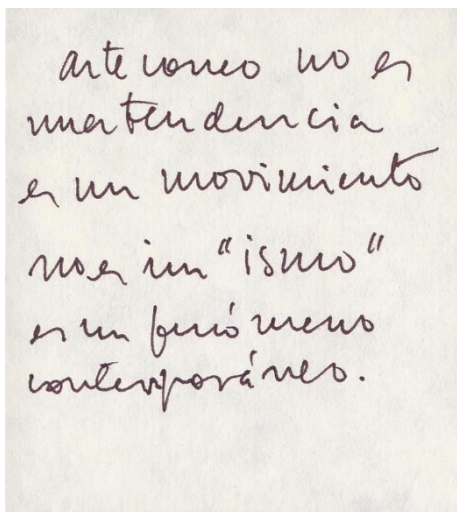 arte correo no es
una tendencia
es un movimiento
no es un "ismo"
es un fenómeno
contemporáneo.